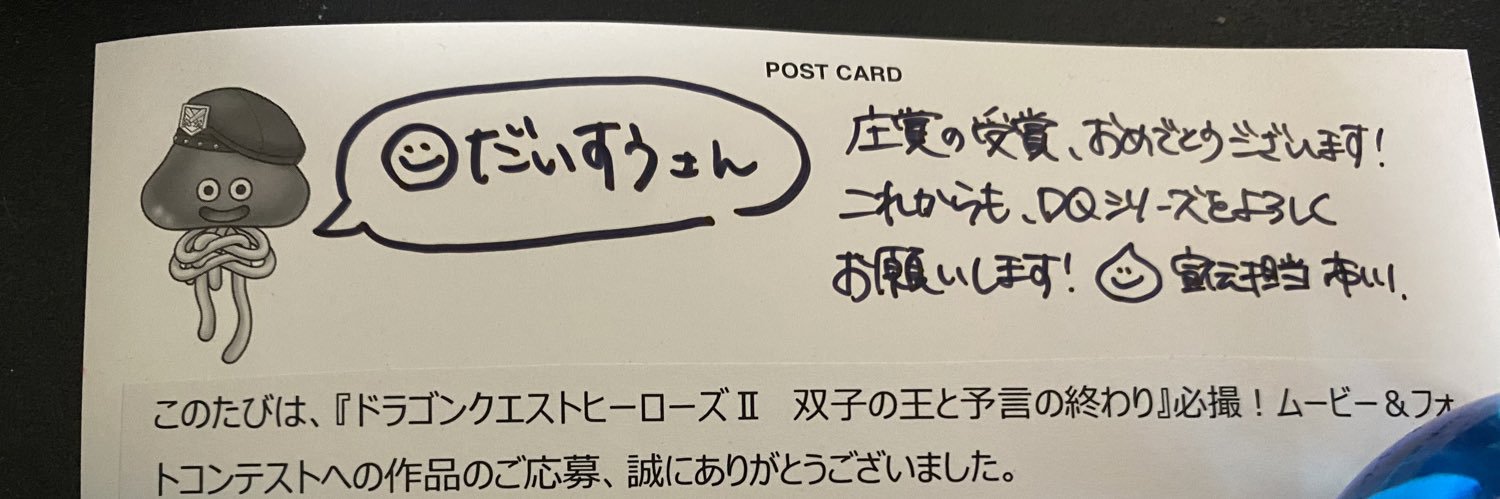 POST CARD
だいすうさん
庄賞の受賞、おめでとうございます!
これからも、DQシリーズをよろしく
お願いします! 宣伝担当 市川.
このたびは、『ドラゴンクエストヒーローズⅡ 双子の王と予言の終わり』必撮!ムービー&フォ
トコンテストへの作品のご応募、誠にありがとうございました。